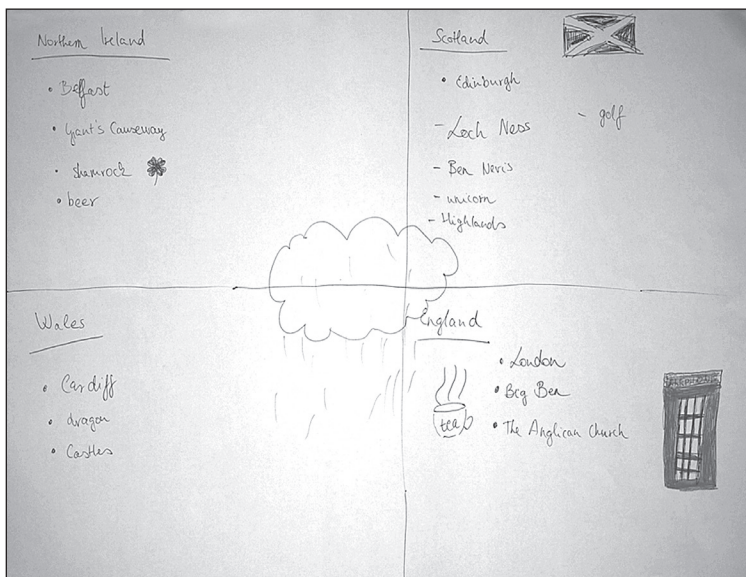 Northern Ireland
• Belfast
• Giant's Causeway
• shamrock
• beer
Scotland
• Edinburgh
- Loch Ness
- golf
- Ben Nevis
- unicorn
- Highlands
Wales
• Cardiff
• dragon
• Castles
England
• London
• Big Ben
• The Anglican Church
tea
TELEPHONE